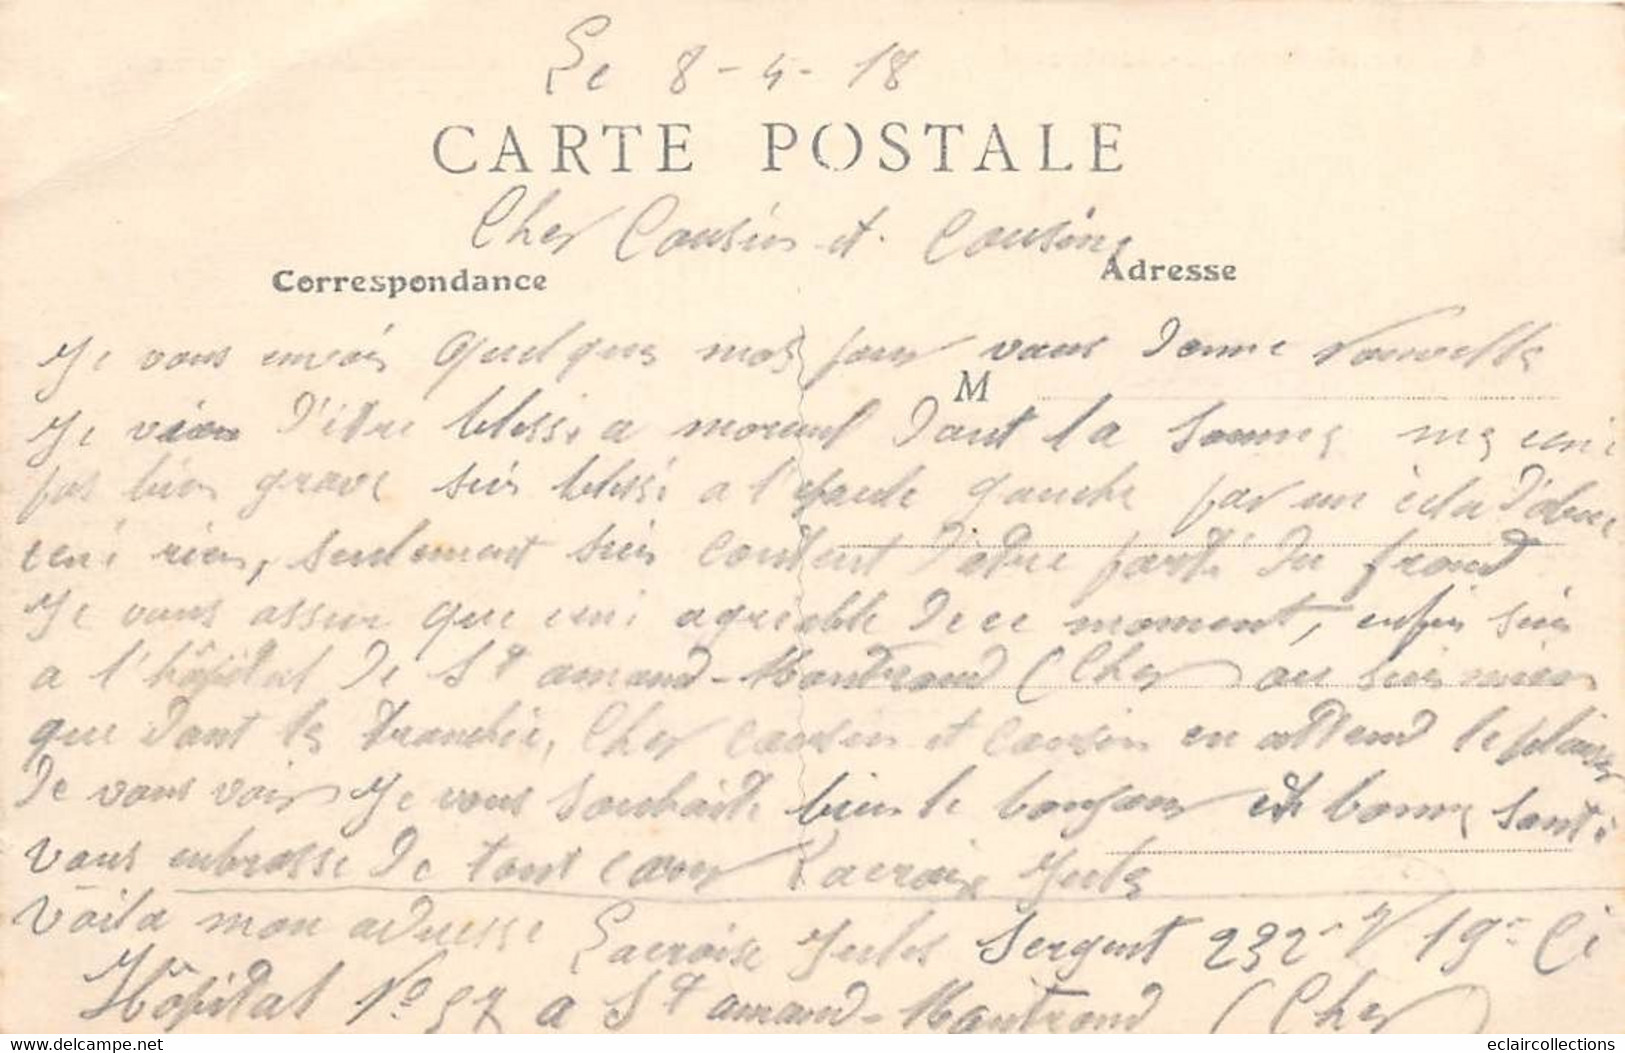 Le 8-4-18
CARTE POSTALE
Cher Cousin et Cousine
Correspondance
Adresse
Je vous envois quelques mos pour vous donne Nouvelle
M
Je vien d'être blessé a moreuil dant la Somme mes ceni
pas bien grave suis blessé a l'epaule gauche par un écla d'obus
ceni rien, seulement suis content d'être parti du frond
Je vous assure que ceni agréable de ce moment, enfin suis
a l'hôpital de St amand-Montrond (Cher) ou suis mieu
que dant les tranchée, Cher cousin et cousin en attend le plaisir
de vous voir Je vous souhaite bien le bonjour et bonne Santé
Vous embrasse de tout cœur Lacroix Jules
Voila mon adresse Lacroix Jules Sergent 232e 19e Cie
Hôpital No 57 a St amand-Montrond (Cher)
eclaircollections